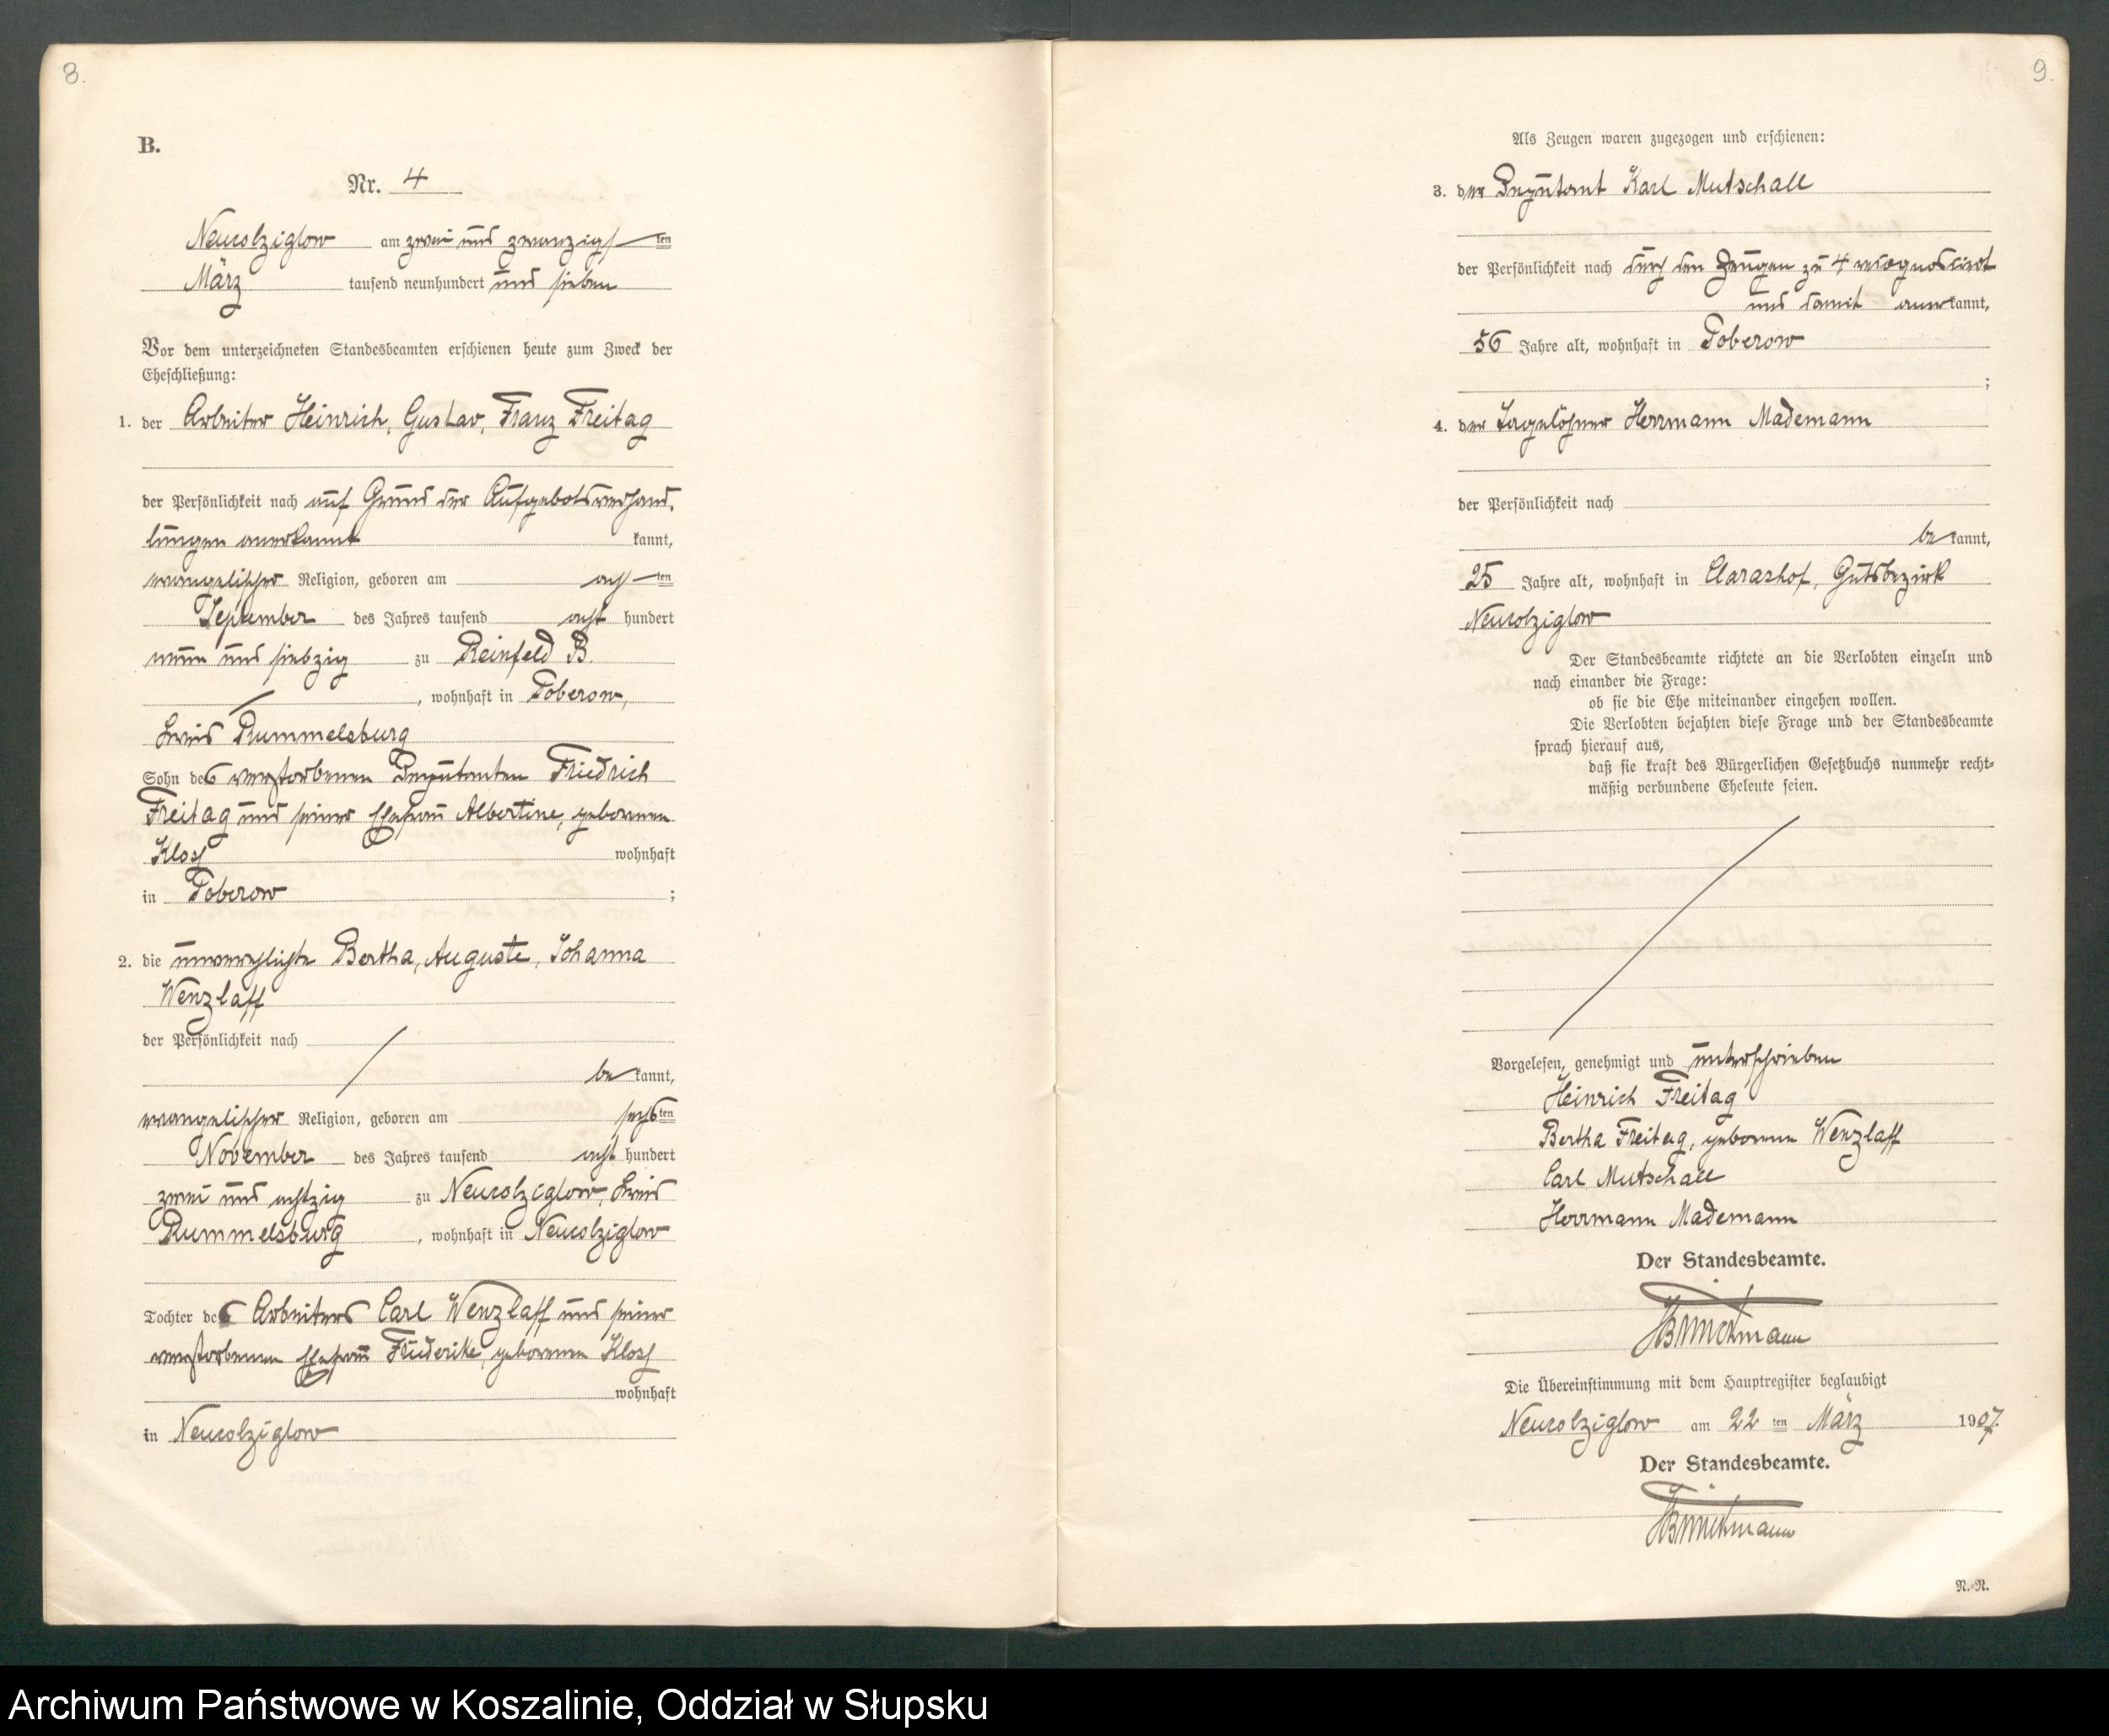 8.
B.
Nr. 4
Neukolziglow am zwei und zwanzigsten
März tausend neunhundert und sieben
Vor dem unterzeichneten Standesbeamten erschienen heute zum Zweck der
Eheschließung:
1. der Arbeiter Heinrich, Gustav, Franz Freitag
der Persönlichkeit nach auf Grund der Aufgebotsverhand-
lungen anerkannt kannt,
evangelischer Religion, geboren am achten
September des Jahres tausend acht hundert
neun und siebzig zu Reinfeld B.
, wohnhaft in Poberow,
Kreis Rummelsburg
Sohn des verstorbenen Deputanten Friedrich
Freitag und seiner Ehefrau Albertine, geborenen
Kloss wohnhaft
in Poberow ;
2. die unverehelichte Bertha, Auguste, Johanna
Wenzlaff
der Persönlichkeit nach
be kannt,
evangelischer Religion, geboren am sechsten
November des Jahres tausend acht hundert
zwei und achtzig zu Neukolziglow, Kreis
Rummelsburg , wohnhaft in Neukolziglow
Tochter des Arbeiters Carl Wenzlaff und seiner
verstorbenen Ehefrau Friederike, geborenen Kloss
wohnhaft
in Neukolziglow
9.
Als Zeugen waren zugezogen und erschienen:
3. der Deputant Karl Mutschall
der Persönlichkeit nach durch den Zeugen zu 4 rekognoscirt
und damit anerkannt,
56 Jahre alt, wohnhaft in Poberow
;
4. der Tagelöhner Herrmann Mademann
der Persönlichkeit nach
be kannt,
25 Jahre alt, wohnhaft in Clarashof, Gutsbezirk
Neukolziglow
Der Standesbeamte richtete an die Verlobten einzeln und
nach einander die Frage:
ob sie die Ehe miteinander eingehen wollen.
Die Verlobten bejahten diese Frage und der Standesbeamte
sprach hierauf aus,
daß sie kraft des Bürgerlichen Gesetzbuchs nunmehr recht-
mäßig verbundene Eheleute seien.
Vorgelesen, genehmigt und unterschrieben
Heinrich Freitag
Bertha Freitag, geborene Wenzlaff
Carl Mutschall
Herrmann Mademann
Der Standesbeamte.
Brinckmann
Die Übereinstimmung mit dem Hauptregister beglaubigt
Neukolziglow am 22 ten März 1907.
Der Standesbeamte.
Brinckmann
N.-N.
Archiwum Państwowe w Koszalinie, Oddział w Słupsku